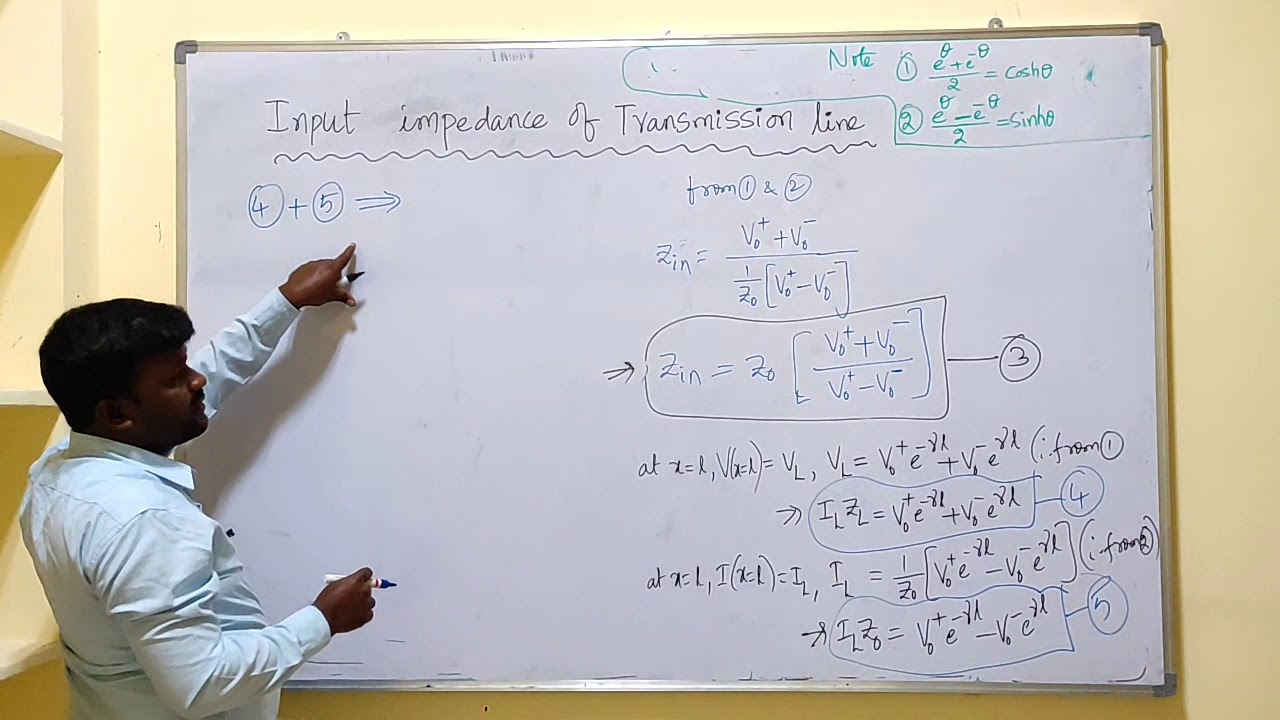 Note ① (e^θ + e^-θ)/2 = coshθ
② (e^θ - e^-θ)/2 = sinhθ
Input impedance of Transmission line
④ + ⑤ ⇒
from ① & ②
Zin = (V₀⁺ + V₀⁻)/((1/Z₀)[V₀⁺ - V₀⁻])
⇒ Zin = Z₀ [(V₀⁺ + V₀⁻)/(V₀⁺ - V₀⁻)] — ③
at x=l, V(x=l) = V_L, V_L = V₀⁺e^-γl + V₀⁻e^γl (∵ from ①
⇒ I_L Z_L = V₀⁺e^-γl + V₀⁻e^γl — ④
at x=l, I(x=l) = I_L, I_L = (1/Z₀)[V₀⁺e^-γl - V₀⁻e^γl] (∵ from ②)
⇒ I_L Z₀ = V₀⁺e^-γl - V₀⁻e^γl — ⑤